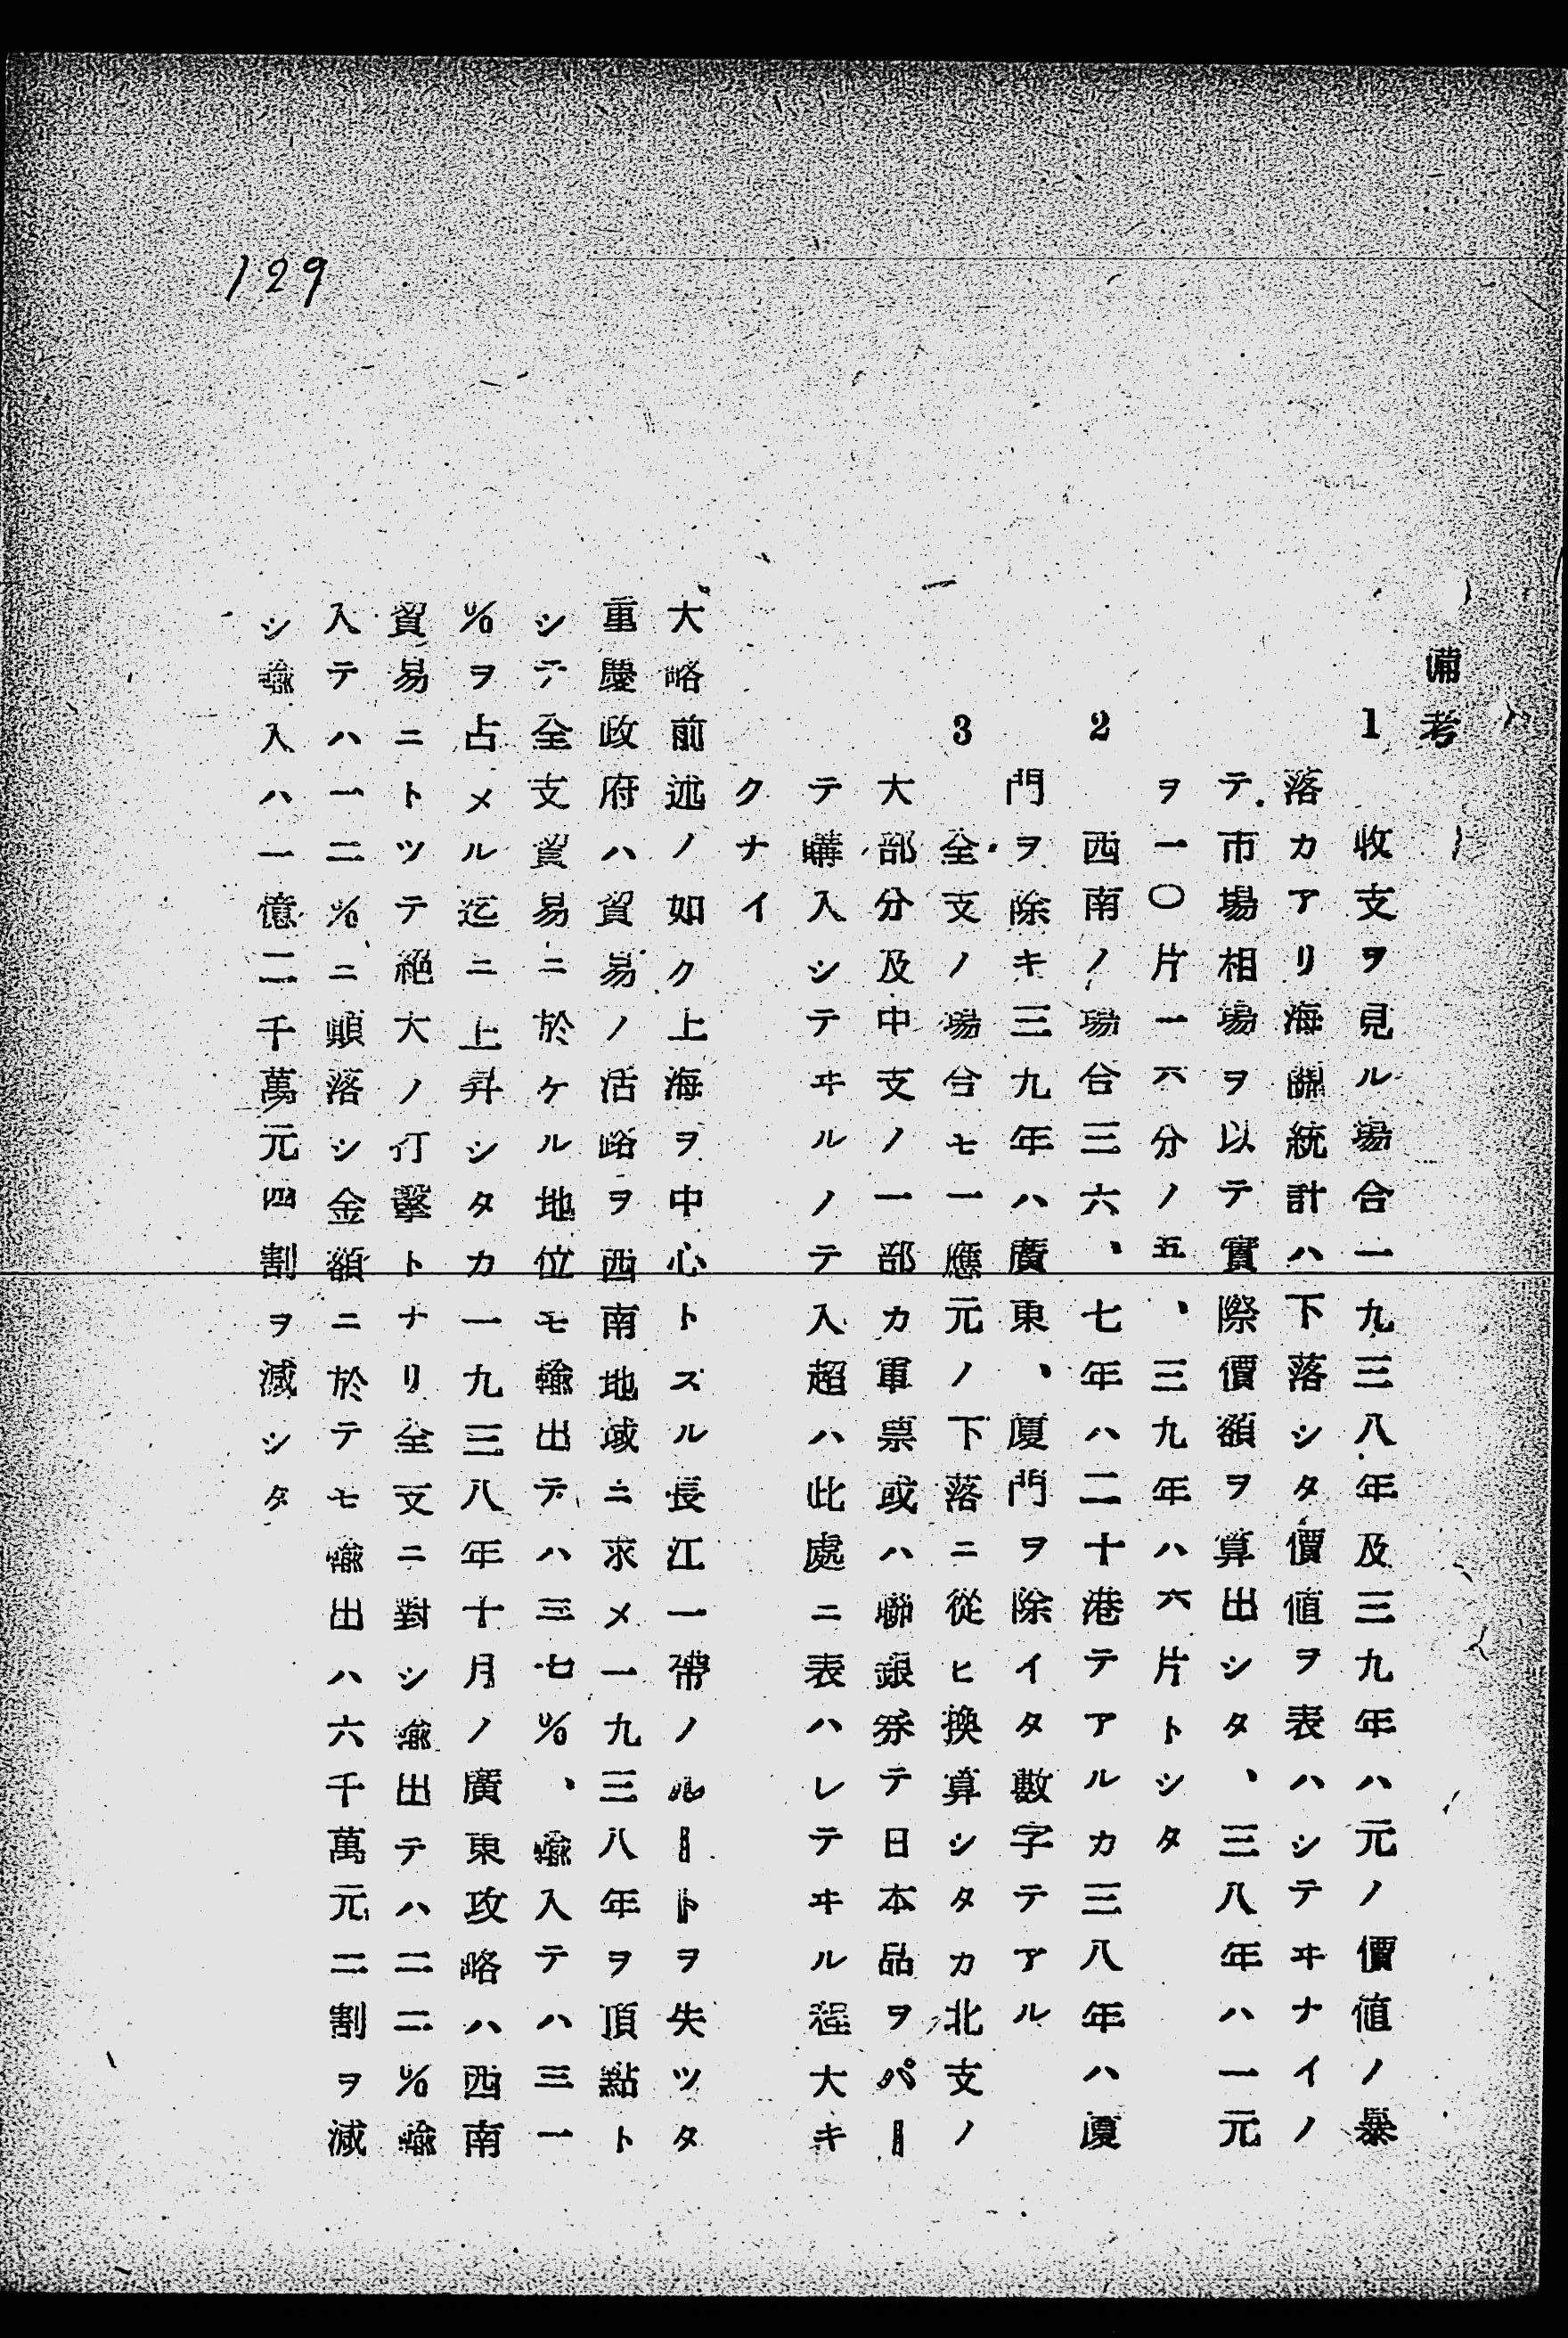 129
備考
1 收支ヲ見ル場合一九三八年及三九年ハ元ノ價値ノ暴
落カアリ海關統計ハ下落シタ價値ヲ表ハシテヰナイノ
テ市場相場ヲ以テ實際價額ヲ算出シタ、三八年ハ一元
ヲ一〇片一六分ノ五、三九年ハ六片トシタ
2 西南ノ場合三六、七年ハ二十港テアルカ三八年ハ厦
門ヲ除キ三九年ハ廣東、厦門ヲ除イタ數字テアル
3 全支ノ場合モ一應元ノ下落ニ從ヒ換算シタカ北支ノ
大部分及中支ノ一部カ軍票或ハ聯銀券テ日本品ヲパー
テ購入シテヰルノテ入超ハ此處ニ表ハレテヰル程大キ
クナイ
大略前述ノ如ク上海ヲ中心トスル長江一帶ノルートヲ失ツタ
重慶政府ハ貿易ノ活路ヲ西南地域ニ求メ一九三八年ヲ頂點ト
シテ全支貿易ニ於ケル地位モ輸出テハ三七%、輸入テハ三一
%ヲ占メル迄ニ上昇シタカ一九三八年十月ノ廣東攻略ハ西南
貿易ニトツテ絶大ノ打擊トナリ全支ニ對シ輸出テハ二二%輸
入テハ一二%ニ顚落シ金額ニ於テモ輸出ハ六千萬元二割ヲ減
シ輸入ハ一億二千萬元四割ヲ減シタ